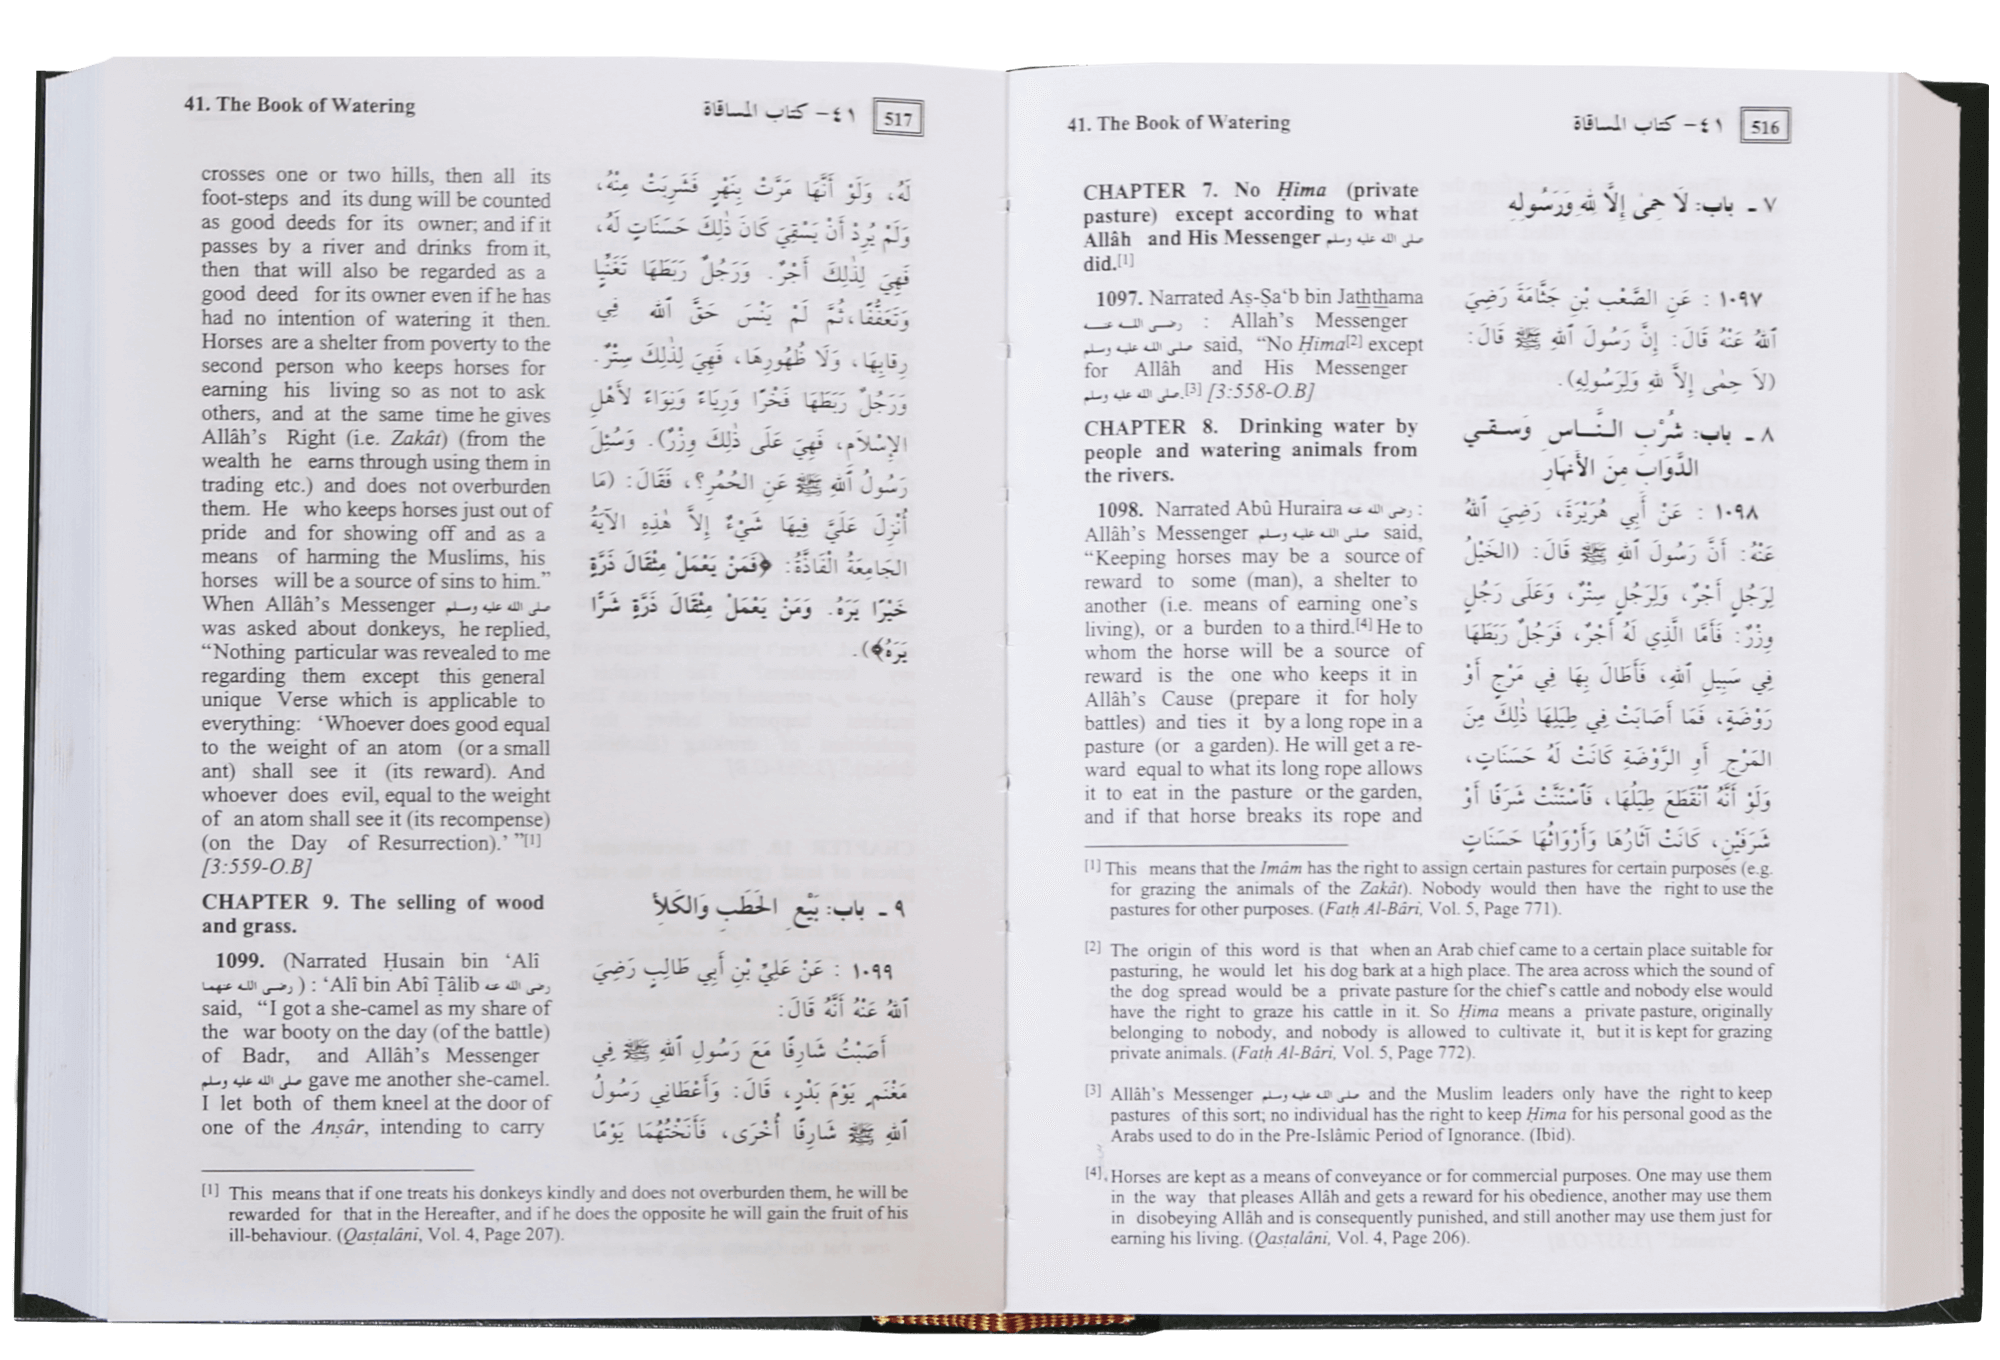 41. The Book of Watering
٤١- كتاب المساقاة
516
CHAPTER 7. No Ḥima (private
pasture) except according to what
Allâh and His Messenger صلى الله عليه وسلم
did.[1]
1097. Narrated Aṣ-Ṣa‘b bin Jaththama
رضى الله عنه : Allah's Messenger
صلى الله عليه وسلم said, “No Ḥima[2] except
for Allâh and His Messenger
صلى الله عليه وسلم.[3] [3:558-O.B]
CHAPTER 8. Drinking water by
people and watering animals from
the rivers.
1098. Narrated Abû Huraira رضى الله عنه :
Allâh's Messenger صلى الله عليه وسلم said,
“Keeping horses may be a source of
reward to some (man), a shelter to
another (i.e. means of earning one's
living), or a burden to a third.[4] He to
whom the horse will be a source of
reward is the one who keeps it in
Allâh's Cause (prepare it for holy
battles) and ties it by a long rope in a
pasture (or a garden). He will get a re-
ward equal to what its long rope allows
it to eat in the pasture or the garden,
and if that horse breaks its rope and
٧ ـ باب: لَا حِمَى إِلاَّ لِلهِ وَرَسُولِهِ
١٠٩٧ : عَنِ الصَّعْبِ بْنِ جَثَّامَةَ رَضِيَ
ٱللهُ عَنْهُ قَالَ: إِنَّ رَسُولَ ٱللهِ ﷺ قَالَ:
(لاَ حِمَى إِلاَّ لِلهِ وَلِرَسُولِهِ).
٨ ـ باب: شُرْبِ النَّاسِ وَسَقيِ
الدَّوَابِ مِنَ الأَنهَارِ
١٠٩٨ : عَنْ أَبِي هُرَيْرَةَ، رَضِيَ ٱللهُ
عَنْهُ: أَنَّ رَسُولَ ٱللهِ ﷺ قَالَ: (الخَيْلُ
لِرَجُلٍ أَجْرٌ، وَلِرَجُلٍ سِتْرٌ، وَعَلَى رَجُلٍ
وِزْرٌ: فَأَمَّا الَّذِي لَهُ أَجْرٌ، فَرَجُلٌ رَبَطَهَا
فِي سَبِيلِ ٱللهِ، فَأَطَالَ بِهَا فِي مَرْجٍ أَوْ
رَوْضَةٍ، فَمَا أَصَابَتْ فِي طِيَلِهَا ذٰلِكَ مِنَ
المَرْجِ أَوِ الرَّوْضَةِ كَانَتْ لَهُ حَسَنَاتٍ،
وَلَوْ أَنَّهُ ٱنْقَطَعَ طِيَلُهَا، فَٱسْتَنَّتْ شَرَفًا أَوْ
شَرَفَيْنِ، كَانَتْ آثَارُهَا وَأَرْوَاثُهَا حَسَنَاتٍ
[1] This means that the Imâm has the right to assign certain pastures for certain purposes (e.g.
for grazing the animals of the Zakât). Nobody would then have the right to use the
pastures for other purposes. (Fatḥ Al-Bâri, Vol. 5, Page 771).
[2] The origin of this word is that when an Arab chief came to a certain place suitable for
pasturing, he would let his dog bark at a high place. The area across which the sound of
the dog spread would be a private pasture for the chief's cattle and nobody else would
have the right to graze his cattle in it. So Ḥima means a private pasture, originally
belonging to nobody, and nobody is allowed to cultivate it, but it is kept for grazing
private animals. (Fatḥ Al-Bâri, Vol. 5, Page 772).
[3] Allâh's Messenger صلى الله عليه وسلم and the Muslim leaders only have the right to keep
pastures of this sort; no individual has the right to keep Ḥima for his personal good as the
Arabs used to do in the Pre-Islâmic Period of Ignorance. (Ibid).
[4] Horses are kept as a means of conveyance or for commercial purposes. One may use them
in the way that pleases Allâh and gets a reward for his obedience, another may use them
in disobeying Allâh and is consequently punished, and still another may use them just for
earning his living. (Qasṭalâni, Vol. 4, Page 206).
41. The Book of Watering
٤١- كتاب المساقاة
517
crosses one or two hills, then all its
foot-steps and its dung will be counted
as good deeds for its owner; and if it
passes by a river and drinks from it,
then that will also be regarded as a
good deed for its owner even if he has
had no intention of watering it then.
Horses are a shelter from poverty to the
second person who keeps horses for
earning his living so as not to ask
others, and at the same time he gives
Allâh's Right (i.e. Zakât) (from the
wealth he earns through using them in
trading etc.) and does not overburden
them. He who keeps horses just out of
pride and for showing off and as a
means of harming the Muslims, his
horses will be a source of sins to him.”
When Allâh's Messenger صلى الله عليه وسلم
was asked about donkeys, he replied,
“Nothing particular was revealed to me
regarding them except this general
unique Verse which is applicable to
everything: ‘Whoever does good equal
to the weight of an atom (or a small
ant) shall see it (its reward). And
whoever does evil, equal to the weight
of an atom shall see it (its recompense)
(on the Day of Resurrection).’ ”[1]
[3:559-O.B]
CHAPTER 9. The selling of wood
and grass.
1099. (Narrated Ḥusain bin ‘Alî
رضى الله عنهما ) : ‘Alî bin Abî Ṭâlib رضى الله عنه
said, “I got a she-camel as my share of
the war booty on the day (of the battle)
of Badr, and Allâh's Messenger
صلى الله عليه وسلم gave me another she-camel.
I let both of them kneel at the door of
one of the Anṣâr, intending to carry
لَهُ، وَلَوْ أَنَّهَا مَرَّتْ بِنَهْرٍ فَشَرِبَتْ مِنْهُ،
وَلَمْ يُرِدْ أَنْ يَسْقِيَ كَانَ ذٰلِكَ حَسَنَاتٍ لَهُ،
فَهِيَ لِذٰلِكَ أَجْرٌ. وَرَجُلٌ رَبَطَهَا تَغَنِّيًا
وَتَعَفُّفًا، ثُمَّ لَمْ يَنْسَ حَقَّ ٱللهِ فِي
رِقابِهَا، وَلَا ظُهُورِهَا، فَهِيَ لِذٰلِكَ سِتْرٌ.
وَرَجُلٌ رَبَطَهَا فَخْرًا وَرِيَاءً وَنِوَاءً لأَهْلِ
الإِسْلَامِ، فَهِيَ عَلَى ذٰلِكَ وِزْرٌ). وَسُئِلَ
رَسُولُ ٱللهِ ﷺ عَنِ الحُمُرِ؟، فَقَالَ: (مَا
أُنْزِلَ عَلَيَّ فِيهَا شَيْءٌ إِلاَّ هٰذِهِ الآيَةُ
الجَامِعَةُ الْفَاذَّةُ: ﴿فَمَنْ يَعْمَلْ مِثْقَالَ ذَرَّةٍ
خَيْرًا يَرَهُ. وَمَنْ يَعْمَلْ مِثْقَالَ ذَرَّةٍ شَرًّا
يَرَهُ﴾).
٩ ـ باب: بَيْعِ الحَطَبِ وَالكَلأ
١٠٩٩ : عَنْ عَلِيِّ بْنِ أَبِي طَالِبٍ رَضِيَ
ٱللهُ عَنْهُ أَنَّهُ قَالَ:
أَصَبْتُ شَارِفًا مَعَ رَسُولِ ٱللهِ ﷺ فِي
مَغْنَمٍ يَوْمَ بَدْرٍ، قَالَ: وَأَعْطَانِي رَسُولُ
ٱللهِ ﷺ شَارِفًا أُخْرَى، فَأَنَخْتُهُمَا يَوْمًا
[1] This means that if one treats his donkeys kindly and does not overburden them, he will be
rewarded for that in the Hereafter, and if he does the opposite he will gain the fruit of his
ill-behaviour. (Qasṭalâni, Vol. 4, Page 207).